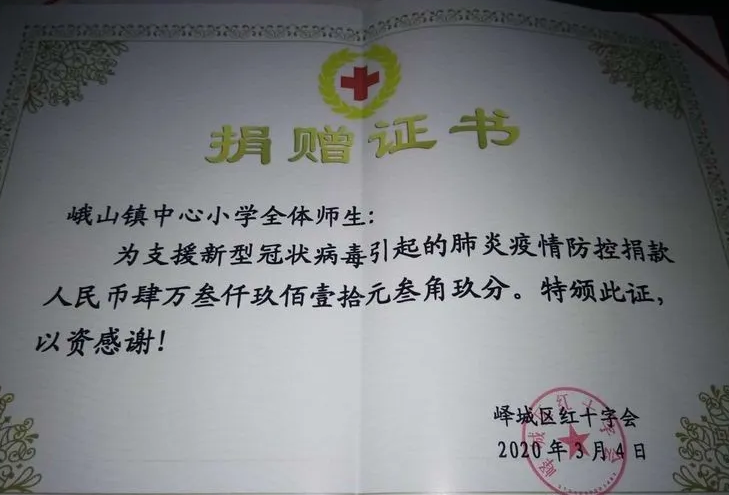 捐赠证书
峨山镇中心小学全体师生:
为支援新型冠状病毒引起的肺炎疫情防控捐款
人民币肆万叁仟玖佰壹拾元叁角玖分。特颁此证,
以资感谢!
峄城区红十字会
2020年3月4日
峄城区红十字会